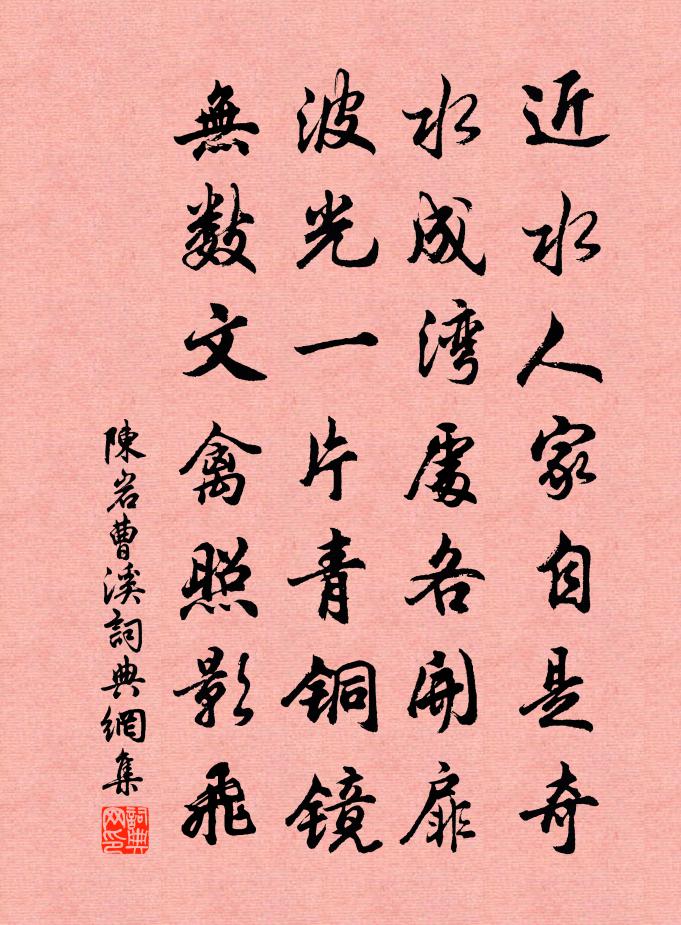 近水人家自是奇
水成湾處各開扉
波光一片青铜镜
無数文禽照影飛
陳岩曹溪詞典網集
詞典网印